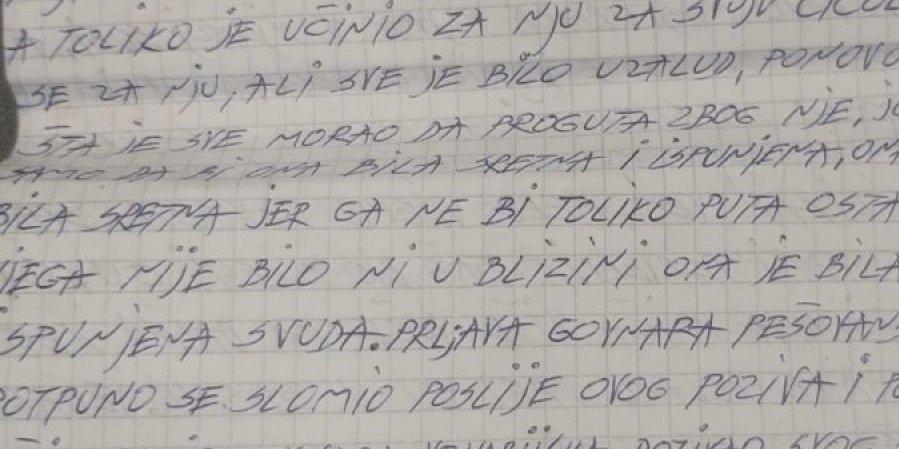 A TOLIKO JE UČINIO ZA NJU ZA SVOJU
SE ZA NJU, ALI SVE JE BILO UZALUD, PONOVO
ŠTA JE SVE MORAO DA PROGUTA ZBOG NJE,
SAMO DA BI ONA BILA SRETNA I ISPUNJENA,
BILA SRETNA JER GA NE BI TOLIKO PUTA
NJEGA NIJE BILO NI U BLIZINI ONA JE BILA
ISPUNJENA SVUDA. PRLJAVA GOVNARA
POTPUNO SE SLOMIO POSLIJE OVOG POZIVA I